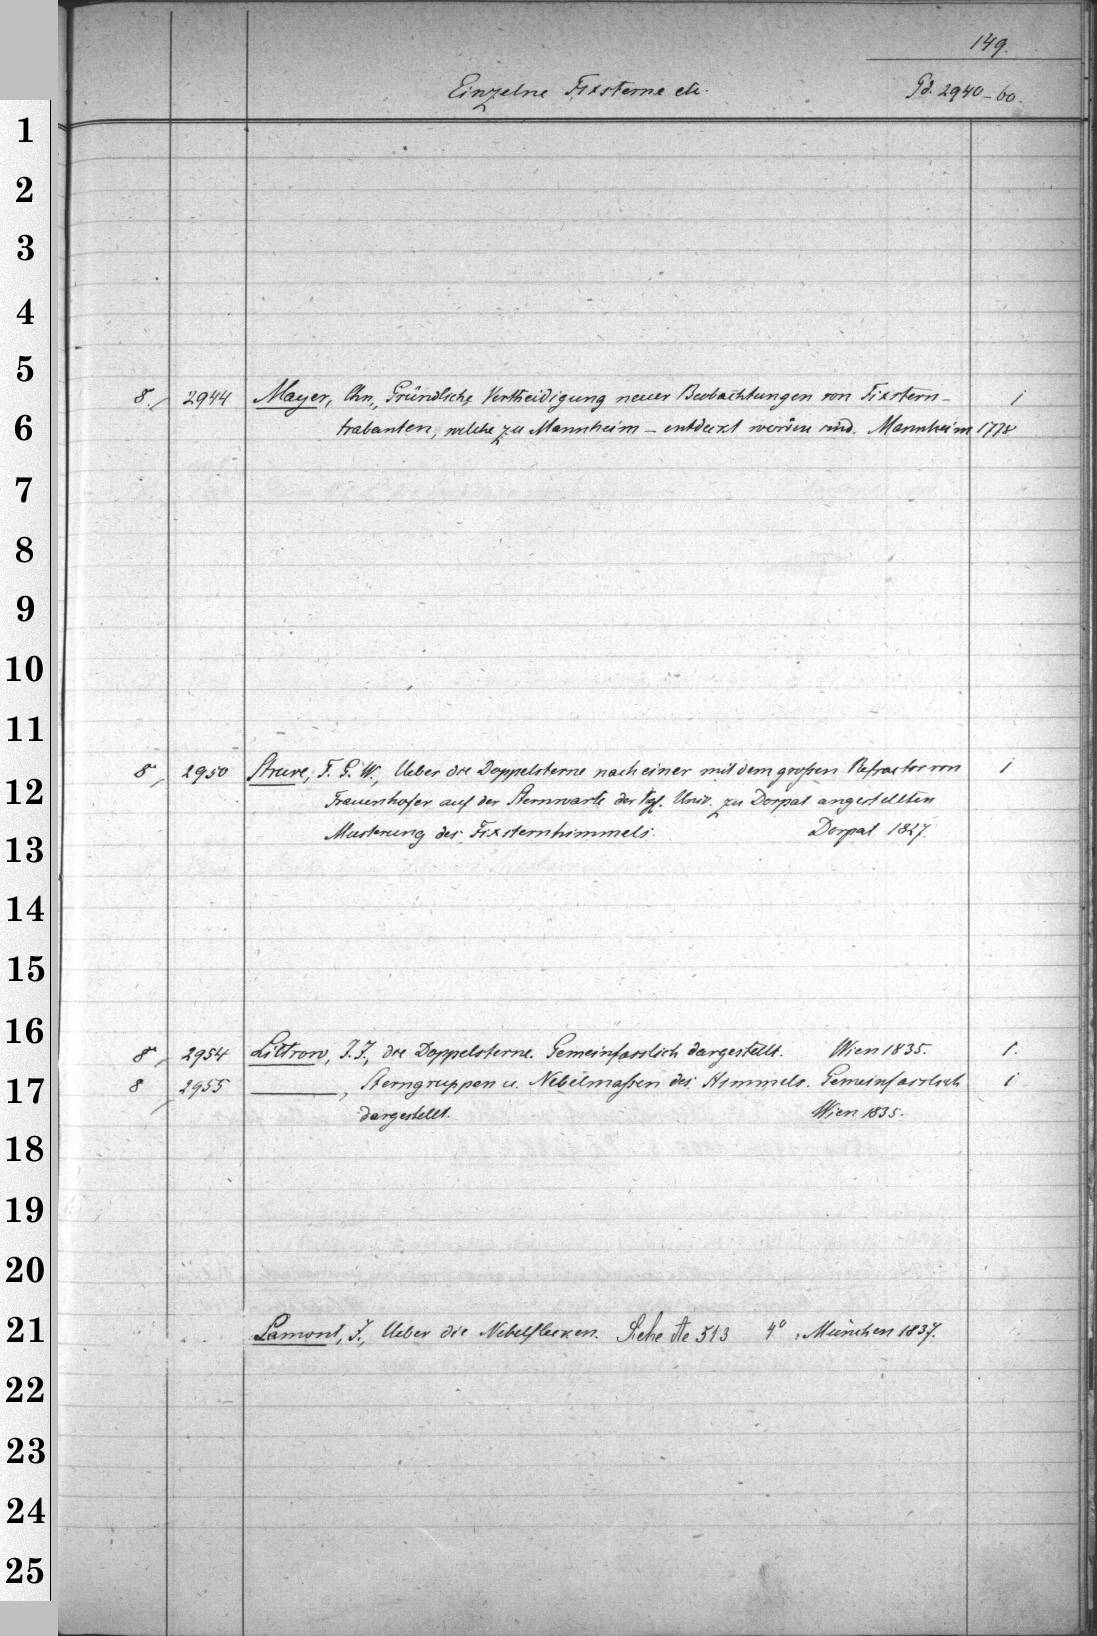 149.
Einzelne Fixsterne etc. Pd. 2940-60.
1
2
3
4
5
8. 2944 Mayer, Chn., Gründliche Vertheidigung neuer Beobachtungen von Fixstern- 1
6
trabanten, welche zu Mannheim - entdeckt worden sind. Mannheim 1778
7
8
9
10
11
8, 2950 Struve, F. G. W., Ueber die Doppelsterne nach einer mit dem großen Refractor von 1
12
Frauenhofer auf der Sternwarte der Univ. zu Dorpat angestellten
Musterung des Fixsternhimmels. Dorpat 1827.
13
14
15
16
8, 2954 Littrow, J. J., die Doppelsterne. Gemeinfasslich dargestellt. Wien 1835. 1.
17
8 2955 ———, Sterngruppen u. Nebelmaßen des Himmels. Gemeinfasslich 1
dargestellt. Wien 1835.
18
19
20
21
Lamont, J., Ueber die Nebelflecken. Siehe 513 4°, München 1837.
22
23
24
25